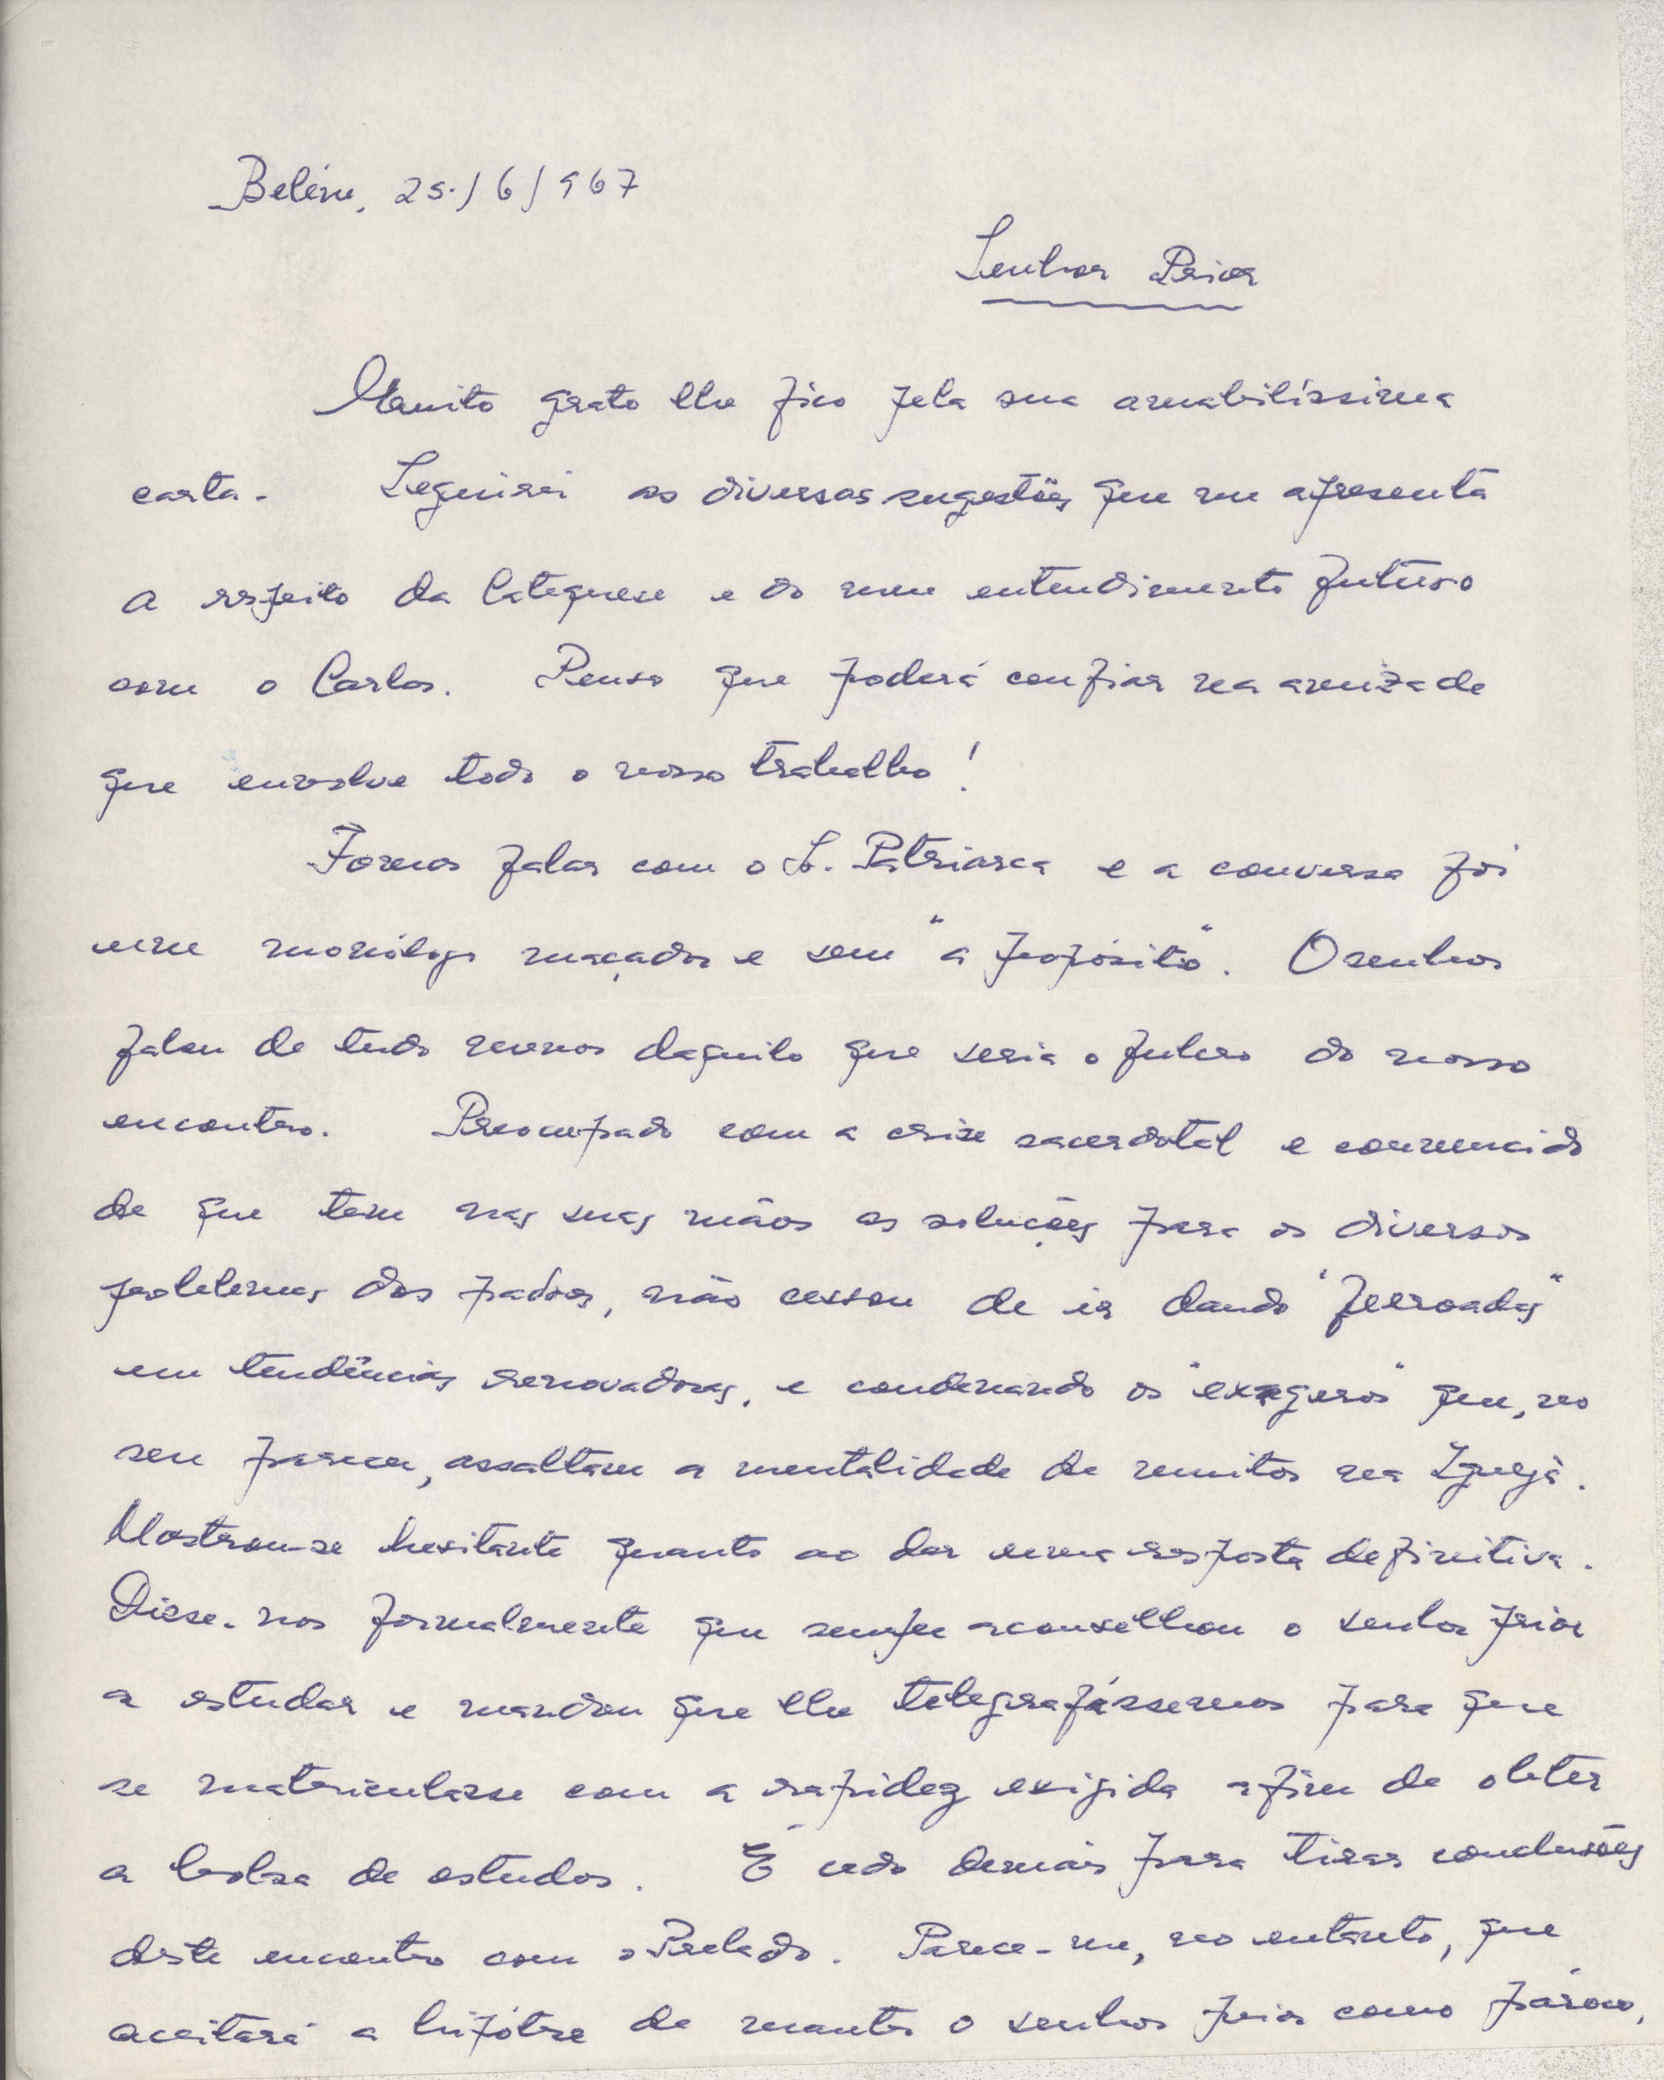 Belém, 25./6/967
Senhor Prior
Muito grato lhe fico pela sua amabilíssima
carta. Seguirei as diversas sugestões que me apresenta
a respeito da Catequese e do meu entendimento futuro
com o Carlos. Penso que poderá confiar na amizade
que envolve todo o nosso trabalho!
Fomos falar com o S. Patriarca e a conversa foi
um monólogo maçador e sem "a propósito". O senhor
falou de tudo menos daquilo que seria o fulcro do nosso
encontro. Preocupado com a crise sacerdotal e convencido
de que tem nas suas mãos as soluções para os diversos
problemas dos padres, não cessou de ir dando "ferroadas"
em tendências renovadoras, e condenando os "exageros" que, no
seu parecer, assaltam a mentalidade de muitos na Igreja.
Mostrou-se hesitante quanto ao dar uma resposta definitiva.
Disse-nos formalmente que sempre aconselhou o senhor prior
a estudar e mandou que lhe telegrafássemos para que
se matriculasse com a rapidez exigida afim de obter
a bolsa de estudos. É cedo demais para tirar conclusões
deste encontro com o Prelado. Parece-me, no entanto, que
aceitará a hipótese de manter o senhor prior como pároco,